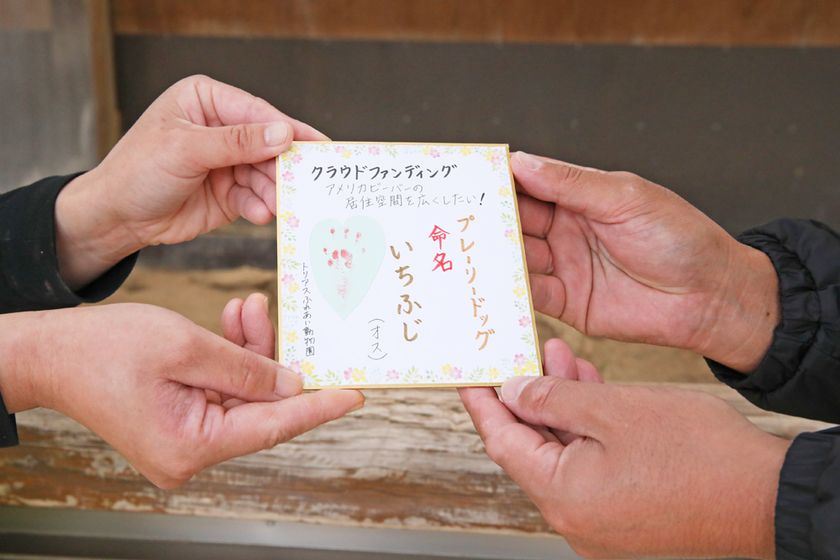 クラウドファンディング
アメリカビーバーの
居住空間を広くしたい!
プレーリードッグ
命名
いちふじ
(オス)
トリアスふれあい動物園